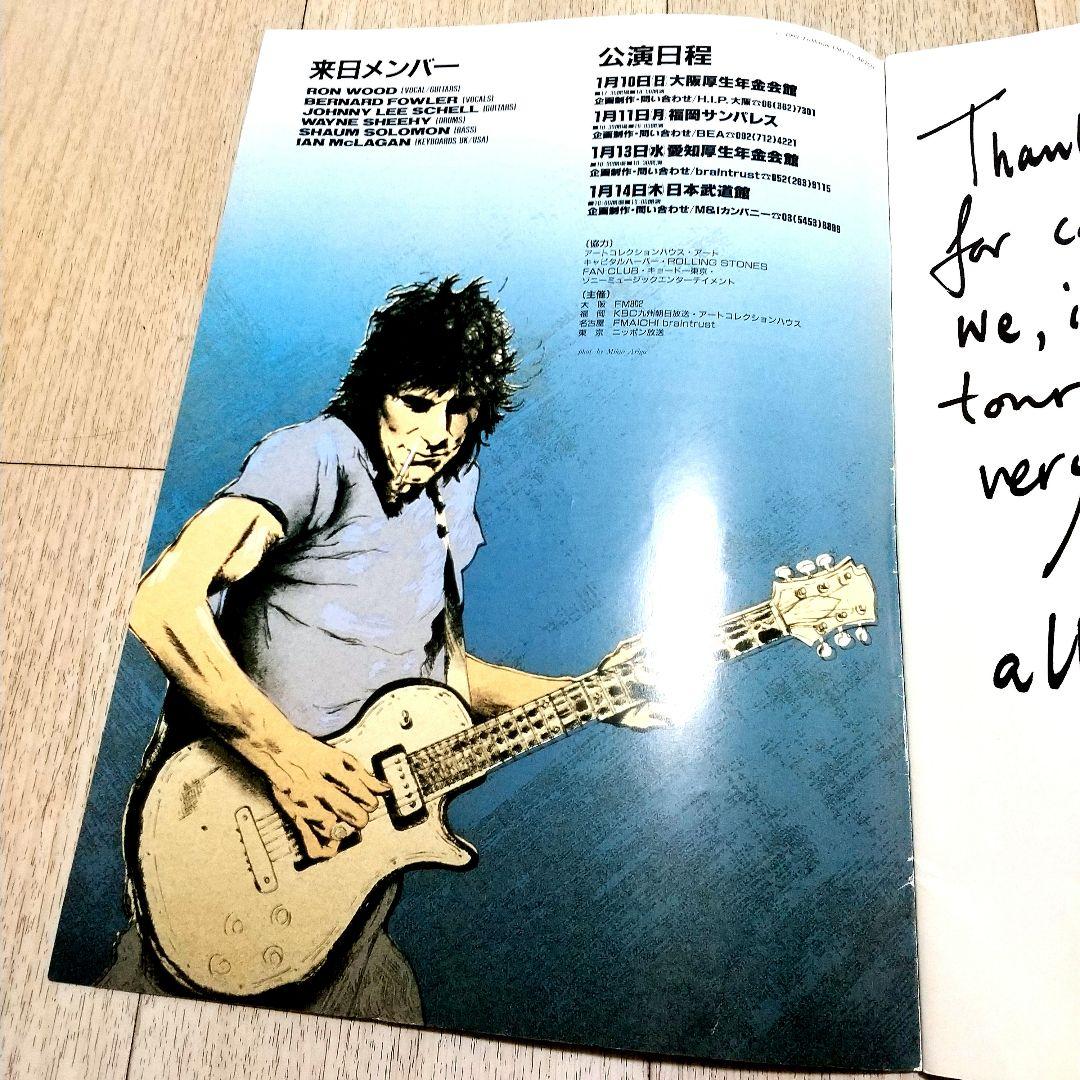 来日メンバー
RON WOOD (VOCAL/GUITARS)
BERNARD FOWLER (VOCALS)
JOHNNY LEE SCHELL (GUITARS)
WAYNE SHEEHY (DRUMS)
SHAUM SOLOMON (BASS)
IAN McLAGAN (KEYBOARDS UK/USA)
公演日程
1月10日日 大阪厚生年金会館
企画制作・問い合わせ/H.I.P. 大阪☎06(362)7301
1月11日月 福岡サンパレス
企画制作・問い合わせ/BEA☎092(712)4221
1月13日水 愛知厚生年金会館
企画制作・問い合わせ/braintrust☎052(269)9115
1月14日木 日本武道館
企画制作・問い合わせ/M&Iカンパニー☎03(5453)8899
(協力)
アートコレクションハウス・アート
キャピタルハーバー・ROLLING STONES
FAN CLUB・キョードー東京・
ソニーミュージックエンターテイメント
(主催)
大 阪 FM802
福 岡 KBC九州朝日放送・アートコレクションハウス
名古屋 FMAICHI braintrust
東 京 ニッポン放送
phot. by Mikio Ariga
Thank
for
we,
tour
very
all